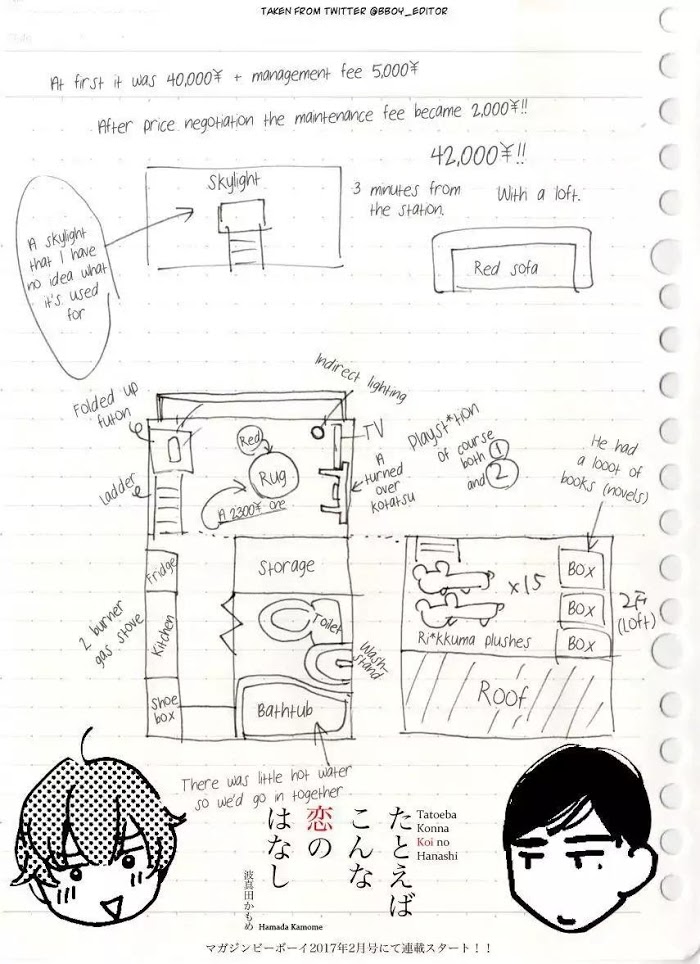 TAKEN FROM TWITTER @BBOY_EDITOR
At first it was 40,000¥ + management fee 5,000¥
After price negotiation the maintenance fee became 2,000¥!!
42,000¥!!
Skylight
3 minutes from
the station.
With a loft.
A skylight
that I have
no idea what
it's used
for
Red sofa
Indirect lighting
Folded up
futon
TV
Playst*tion
of course
both ①
and ②
Red
Rug
A 2300¥ one
A
turned
over
kotatsu
He had
a looot of
books (novels)
Ladder
Fridge
Storage
BOX
x15
BOX
2F
(Loft)
Ri*kkuma plushes
BOX
2 burner
gas stove
Kitchen
Toilet
Wash-
stand
Roof
Shoe
box
Bathtub
There was little hot water
so we'd go in together
たとえば
こんな
恋の
はなし
Tatoeba
Konna
Koi no
Hanashi
波真田かもめ
Hamada Kamome
マガジンビーボーイ2017年2月号にて連載スタート！！